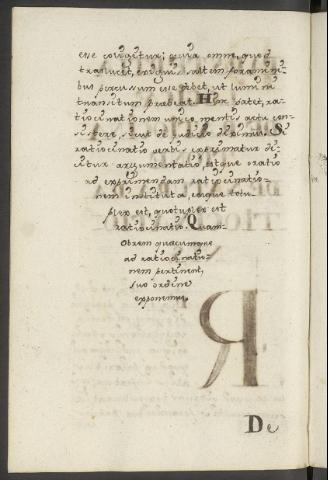 esse corrigetur; quia omne, quod
traslucet, exiguis saltem foramini-
bus percussum esse debet, ut lumini
transitum praebeat. Hinc patet, ra-
tiocinationem unico mentis actu con-
sistere, sicut de judicio diximus. Si
ratiocinatio verbis exprimatur di-
citur argumentatio, estque oratio
ad exprimendam ratiocinatio-
nem instituta, eaque totu-
plex est, quotuplex est
ratiocinatio. Quam-
obrem quaecumque
ad ratiocinatio-
nem pertinent,
suo ordine
exponemus.
De